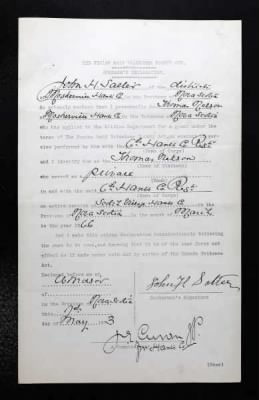 THE FENIAN RAID VOLUNTEER BOUNTY ACT.
DECLARANT'S DECLARATION.
I John H Salter of the district
of Mosherville Hants Co in the Province of Nova Scotia
do solemnly declare that I personally Thomas Nelson
of Mosherville Hants Co in the Province of Nova Scotia
who has applied to the Militia Department for a grant under the
terms of The Fenian Raid Volunteer
formed by him with the 6th Hants Co Regt
(Name of Corps)
and I identify him as the Thomas Nelson
who served as private
in and with the said 6th Hants Co Regt
(Name of Corps)
at Scotch Village Hants Co in the
Province of Nova Scotia in the month of March
in the year 1866
And I make this solemn Declaration conscientiously believing
the same to be true, and knowing that it is of the same force and
effect as if made under oath and by virtue of the Canada Evidence
Act.
Declared before me at
Windsor
in the Province of Nova Scotia
this
day of May 1913
John H Salter
Declarant's Signature
J. E. Curran JP.
for Hants Co
(Over)